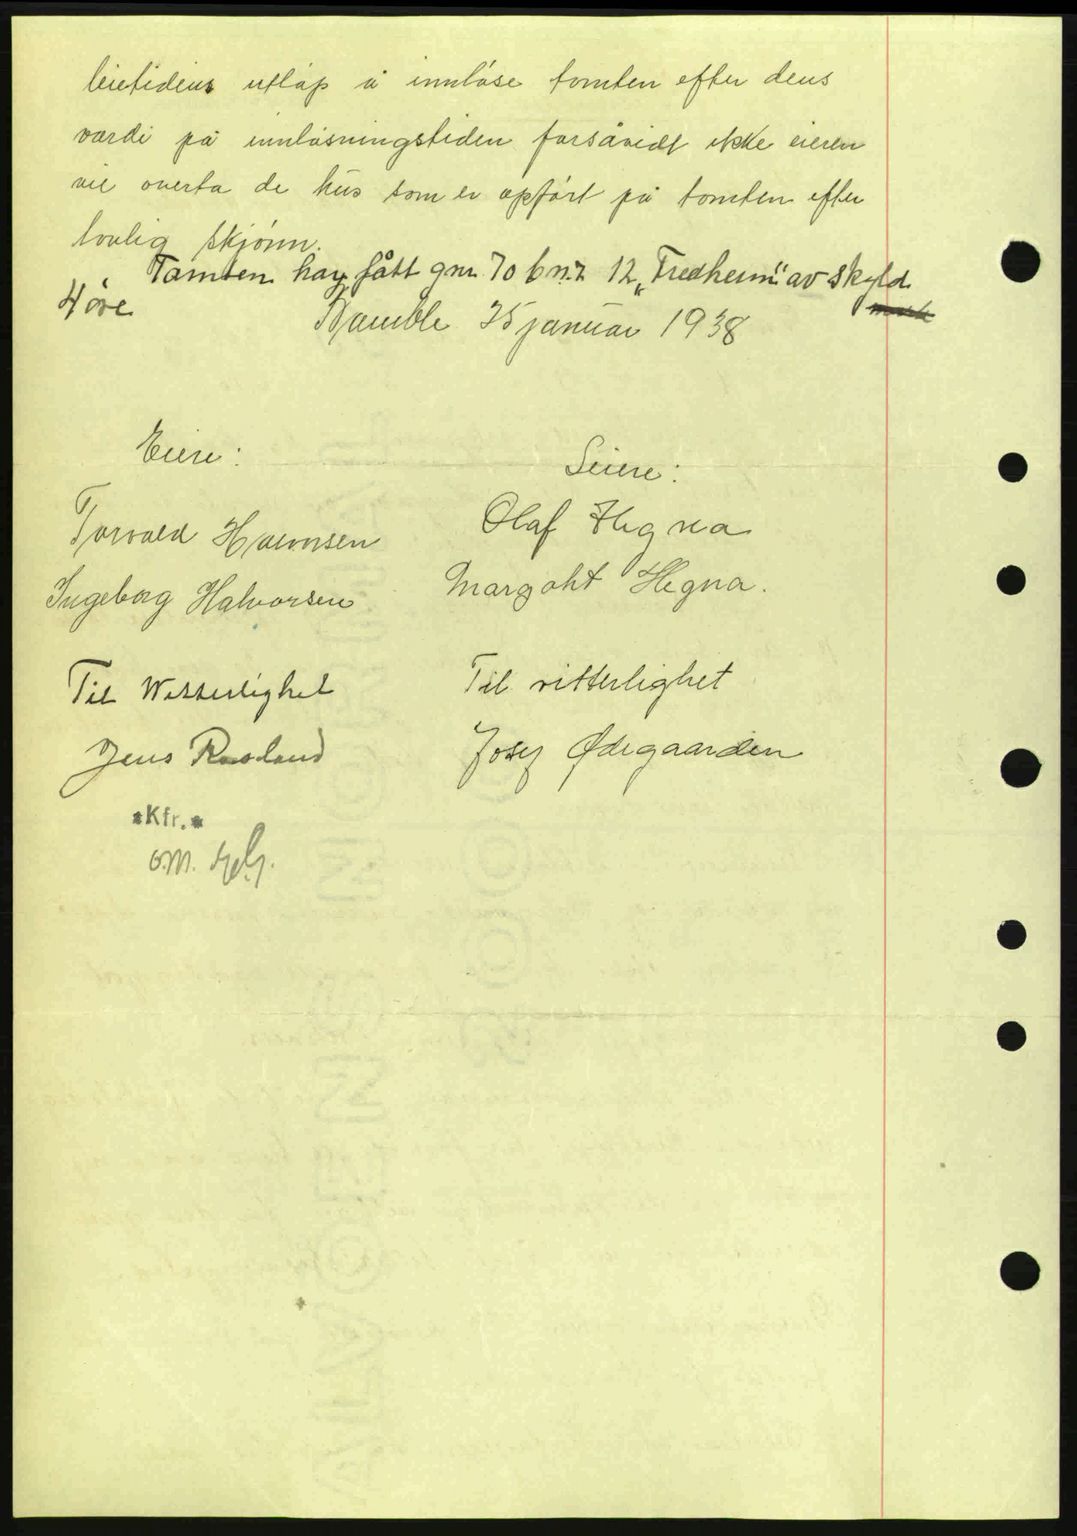 leietidens utløp å innløse tomten efter dens
værdi på innløsningstiden forsåvidt ikke eieren
vil overta de hus som er opført på tomten efter
lovlig skjønn.
Tomten har fått gnr. 70 bnr. 12 „Fredheim" av skyld
4 øre
Bamble 25 januar 1938
Eiere:
Leiere:
Torvald Halvorsen
Olaf Hegna
Ingeborg Halvorsen
Margoht Hegna.
Til Witterlighet
Til vitterlighet
Jens Rosland
Josef Ødegaarden
*Kfr.*